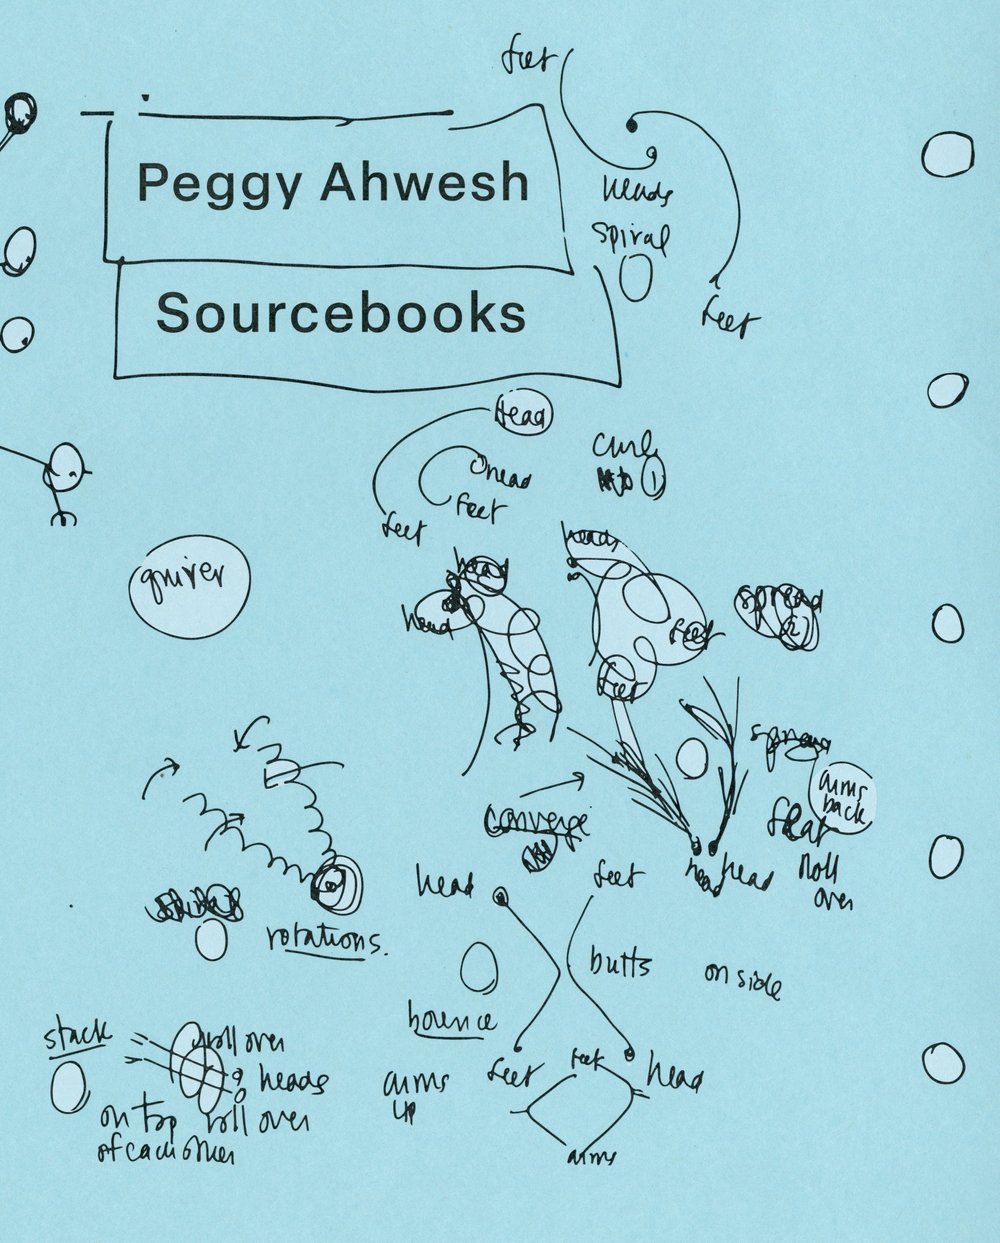 feet
Peggy Ahwesh
heads
spiral
Sourcebooks
feet
head
curl
head
feet
feet
heads
head
quiver
spread
head
feet
feet
spread
arms
back
converge
flat
head
head
roll
over
head
feet
rotations.
butts
on side
bounce
stack
roll over
heads
on top
roll over
of each other
arms
up
feet
feet
head
arms